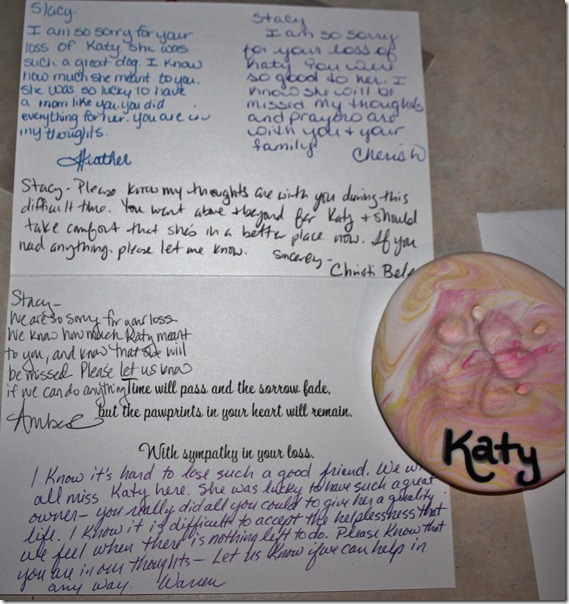 Stacy-
I am so sorry for your
loss of Katy. She was
such a great dog. I know
how much she meant to you.
She was so lucky to have
a mom like you. you did
everything for her. you are in
my thoughts.
Heather
Stacy
I am so sorry
for your loss of
Katy You were
so good to her. I
know she will be
missed My thoughts
and prayers are
with you & your
family
Cherish
Stacy- Please know my thoughts are with you during this
difficult time. You went above & beyond for Katy & should
take comfort that she's in a better place now. If you
need anything, please let me know.
Sincerely-
Christi
Stacy-
We are so sorry for your loss
We know how much Katy meant
to you, and know that she will
be missed Please let us know
if we can do anything
Amber
Time will pass and the sorrow fade,
but the pawprints in your heart will remain.
With sympathy in your loss.
I know it's hard to lose such a good friend. We
all miss Katy here. She was lucky to have such a great
owner- you really did all you could to give her a quality
life. I know it is difficult to accept the helplessness that
we feel when there is nothing left to do. Please know that
you are in our thoughts- Let us know if we can help in
any way. Warren
Katy